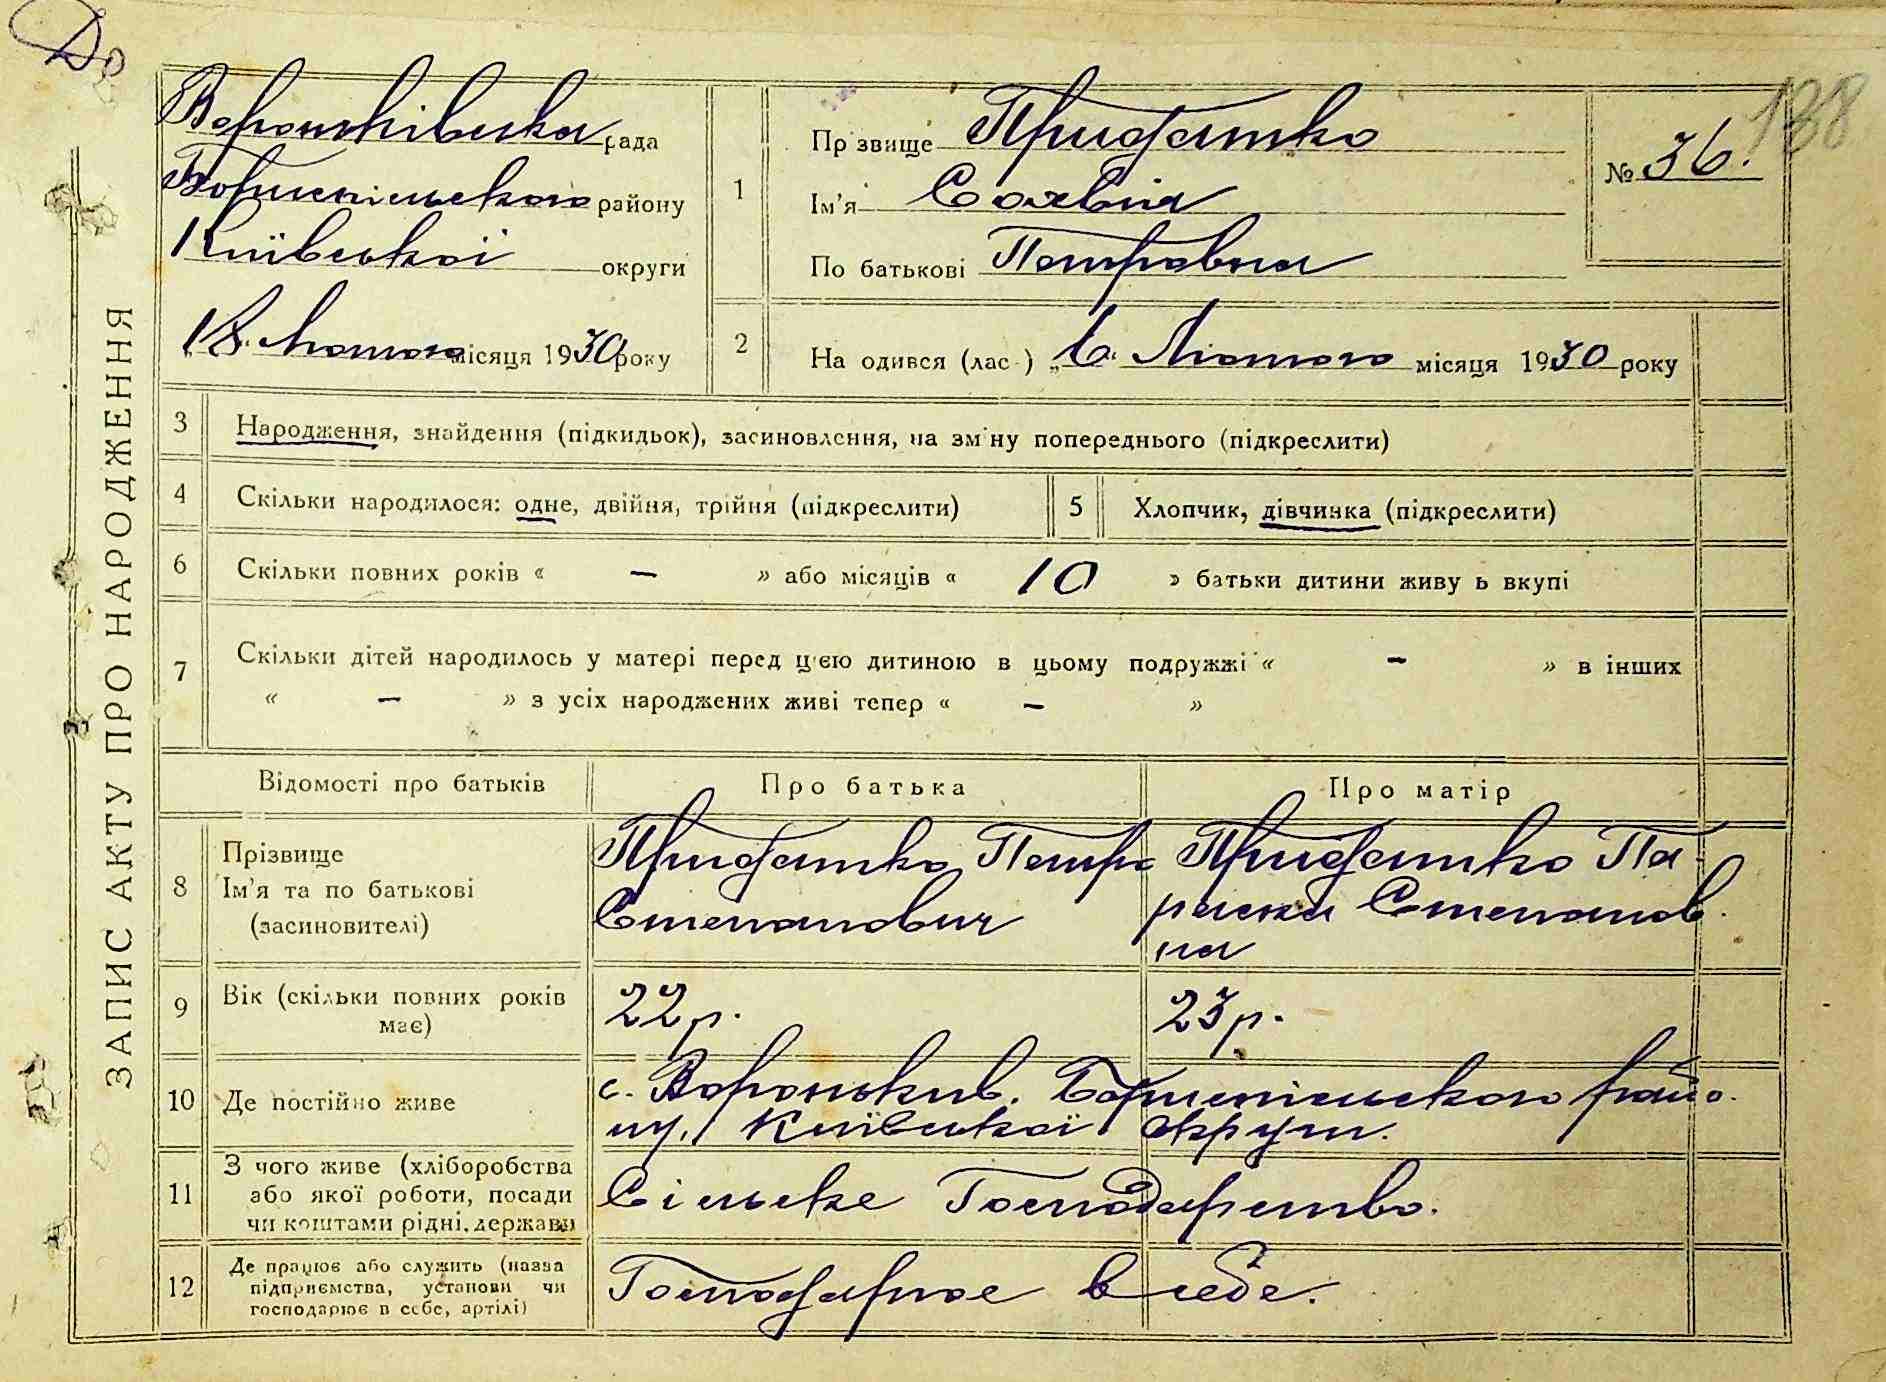 До
188
ЗАПИС АКТУ ПРО НАРОДЖЕННЯ
Вороньківська рада
Бориспільського району
Київської округи
"18." Лютого місяця 1930 року
1
Прізвище Придатко
Ім'я
По батькові Петровна
№ 36.
2
На одився (лас-) „6." Лютого місяця 1930 року
3 Народження, знайдення (підкидьок), засиновлення, на зміну попереднього (підкреслити)
4 Скільки народилося: одне, двійня, трійня (підкреслити) 5 Хлопчик, дівчинка (підкреслити)
6 Скільки повних років « — » або місяців « 10 » батьки дитини живуть вкупі
7 Скільки дітей народилось у матері перед цією дитиною в цьому подружжі « — » в інших
« — » з усіх народжених живі тепер « — »
Відомості про батьків Про батька Про матір
8 Прізвище Ім'я та по батькові (засиновителі)
Придатко Петро
Степанович
Придатко Па-
раски Степанов-
на
9 Вік (скільки повних років має) 22 р. 23 р.
10 Де постійно живе с. Вороньків. Бориспільського райо-
ну, Київської округи.
11 З чого живе (хліборобства або якої роботи, посади чи коштами рідні, держави Сільське Господарство.
12 Де працює або служить (назва підприємства, установи чи господарює в себе, артілі) Господарює в себе.